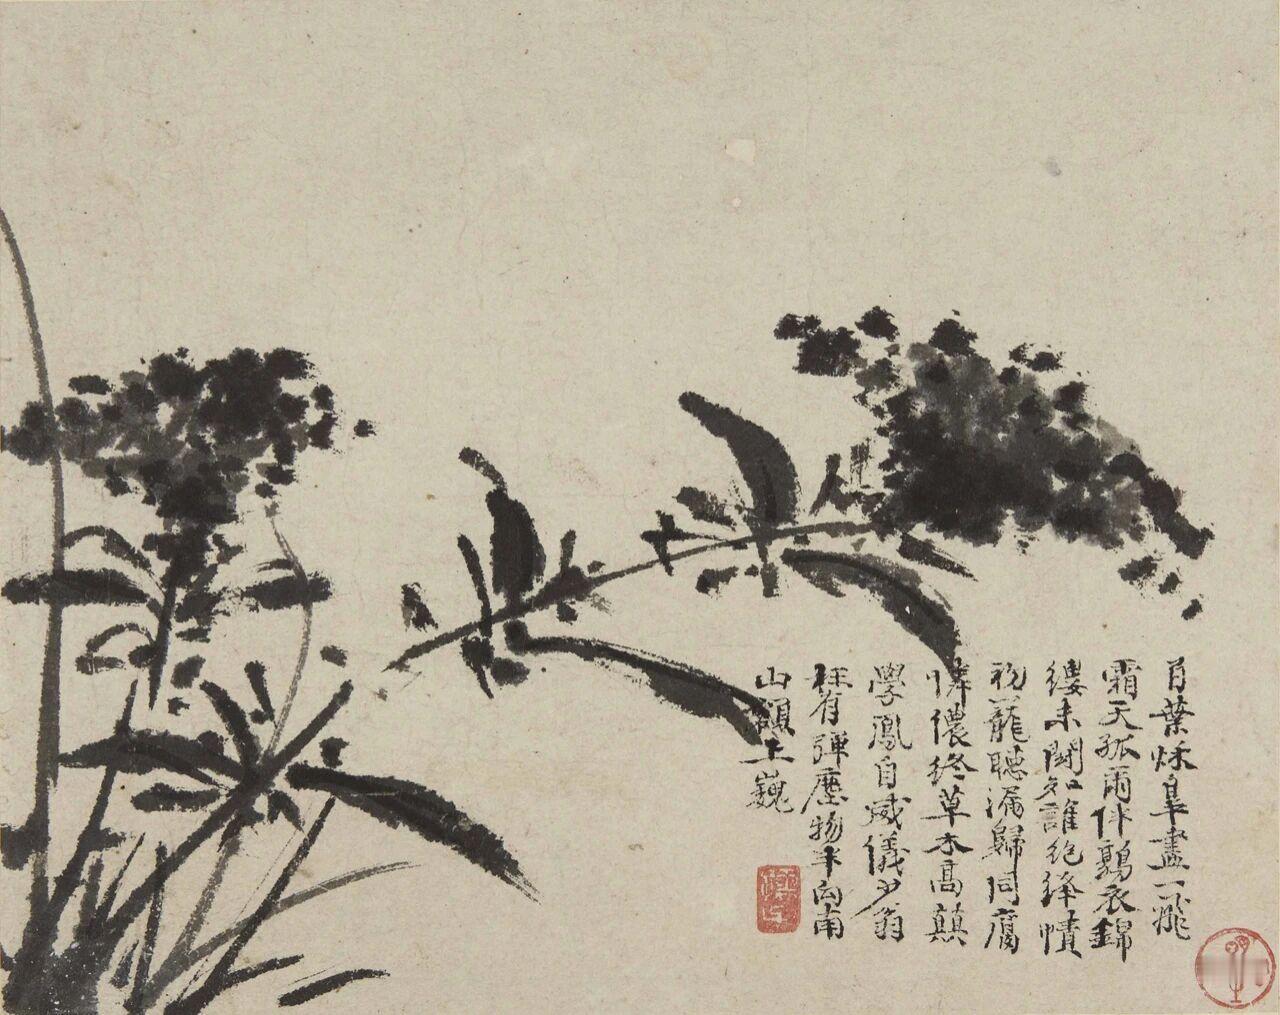 百葉秋皋盡一飛
霜天孤雨伴鶉衣錦
纓未鬪名誰絶絳幘
初籠聽漏歸同腐
憐儂終草木高蘋
學鳳自威儀少翁
枉有彈塵物半向南
山領上巍